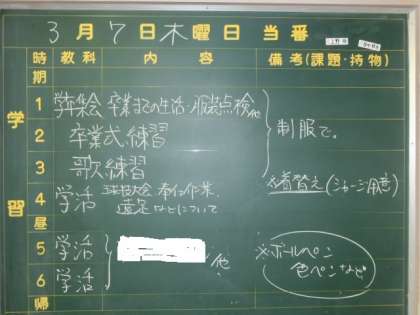 3月7日木曜日 当番
時期 教科 内容 備考(課題・持物)
学習
1 学年集会 卒業までの生活・服装点検他
2 卒業式練習
3 歌練習
制服で。
4 学活 球技大会 奉仕作業、
遠足などについて
※着替え(ジャージ用意)
昼
5 学活 他
6 学活
※ボールペン
色ペンなど
帰